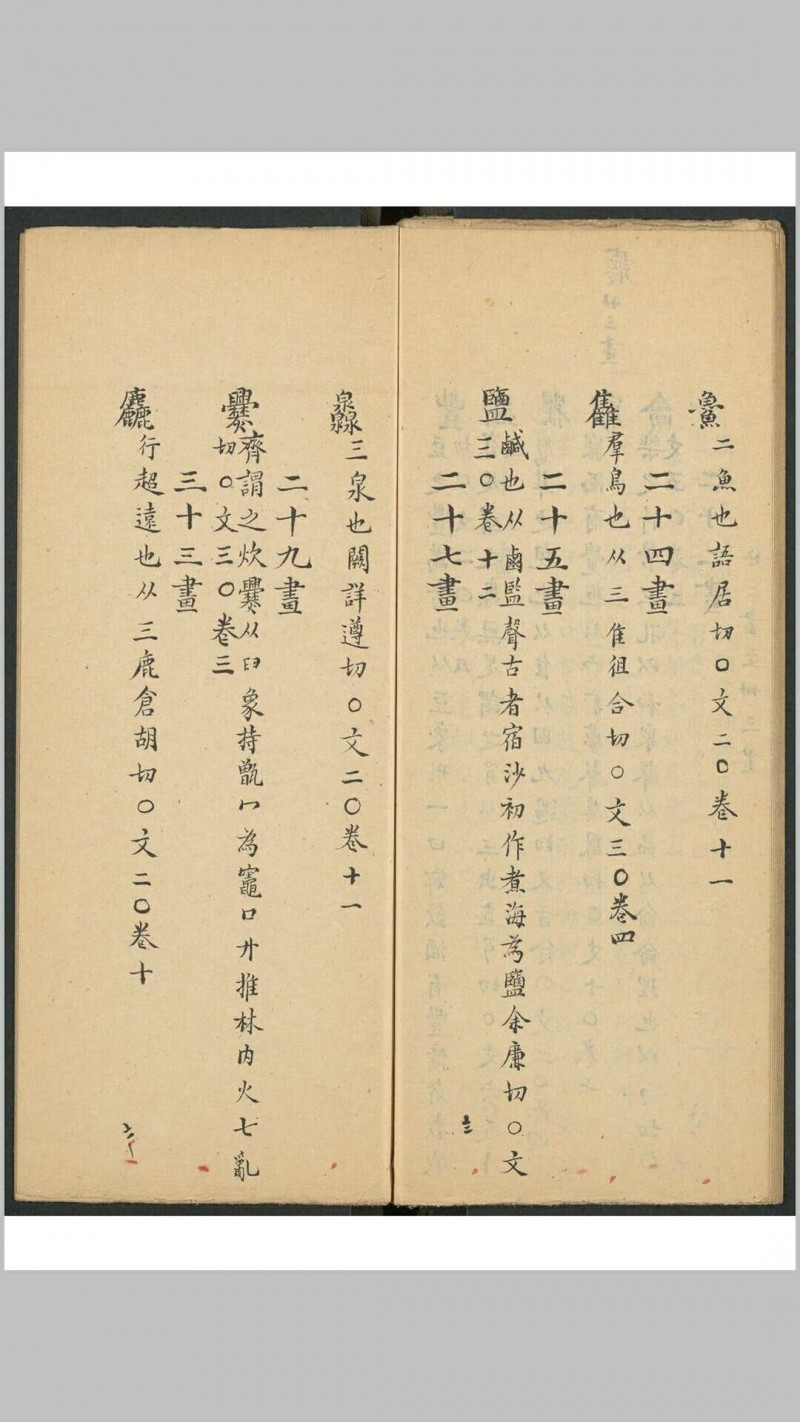 䲆二魚也語居切〇文二〇卷十一
二十四畫
雥羣鳥也从三隹徂合切〇文三〇卷四
二十五畫
鹽鹹也从鹵監聲古者宿沙初作煮海為鹽余廉切〇文
三〇卷十二
二十七畫
灥三泉也闕詳遵切〇文二〇卷十一
二十九畫
爨齊謂之炊爨从𦥑象持甑冖為竈口廾推林内火七亂
切〇文三〇卷三
三十三畫
麤行超遠也从三鹿倉胡切〇文二〇卷十